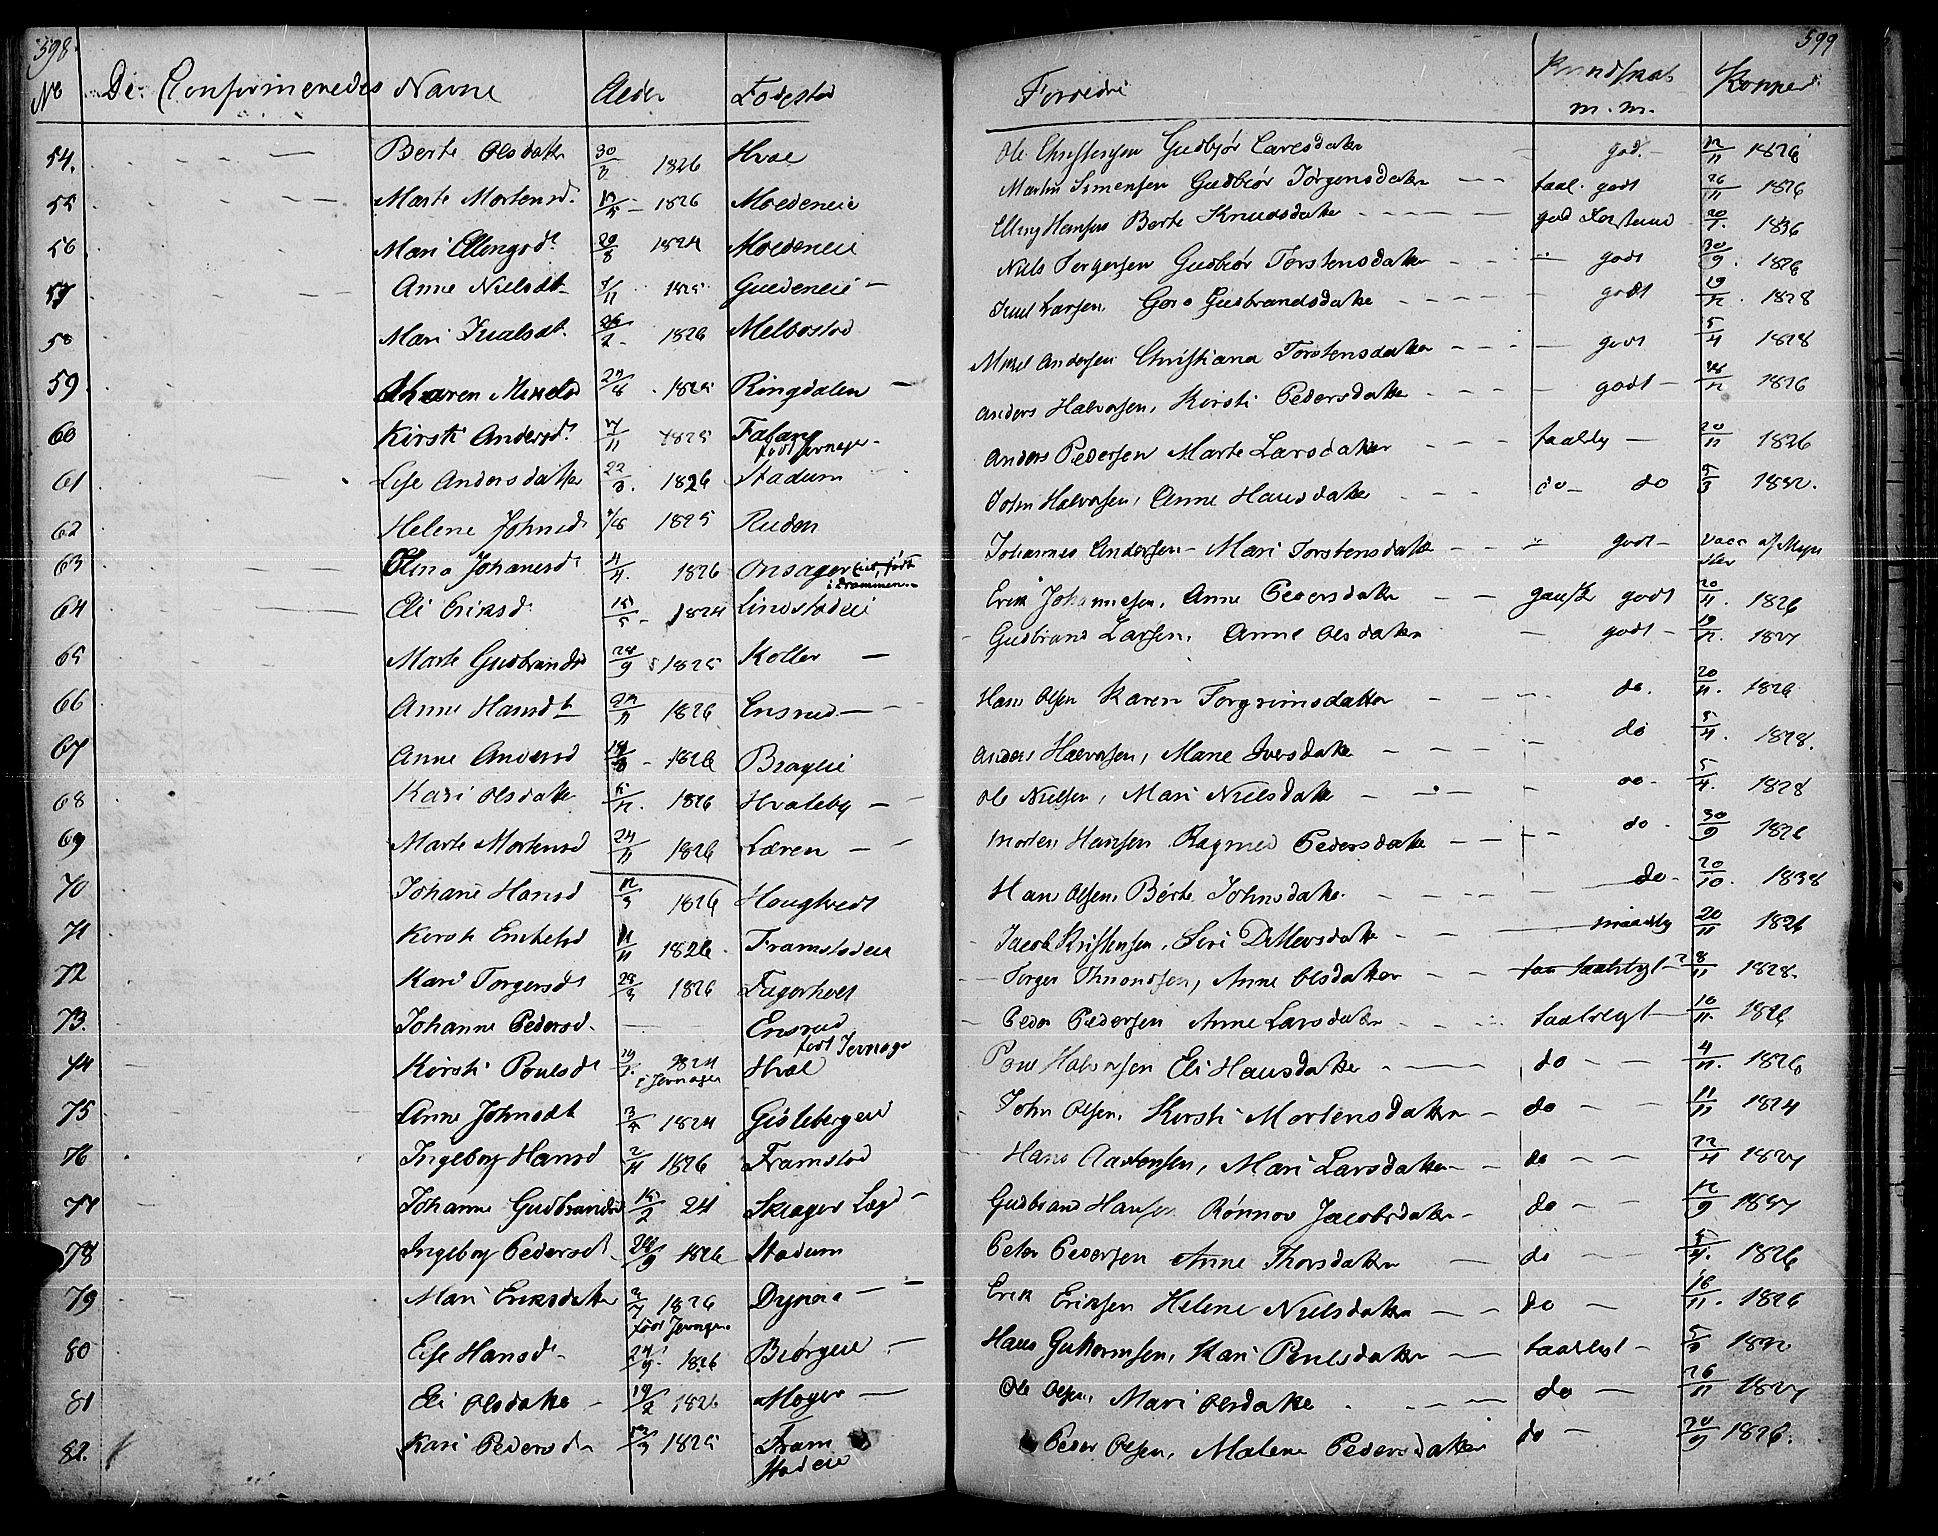 598.
No De Confirmeredes Navne Alder Fødested
54. Berte Olsdatter 30/3 1826 Hval
55 Marte Mortensd. 1826 Moedeneie
56 Mari Ellengsdt 29/8 1824 Moedeneie
57 Anne Nielsdt 1/11 1825 Guldeneie
58 Mari Iuulsdt. 26/2 1826 Melbostad
59. Maren Mixelsd 1825 Ringdalen
60 Kirsti Andersdt. 11 1825 Falang født Jevnager
61 Lise Andersdatter 22/3. 1826 Stadum
62 Helene Johnsd 1825 Ruden
63 Olina Johanesdt 4/4. 1826 Onsager eie, født i Drammen
64 Eli Eriksd. 15/5 1824 Lindstadeie
65 Marte Gudbrandsd 28/9 1825 Koller
66 Anne Hansdt 1826 Ensrud
67 Anne Andersd 1826 Brageie
68 Kari Olsdatter 1826 Hvaleby
69 Marte Mortensd 24/11 1826 Læren
70 Johane Hansd 12/3 1826 Haugtvedt
71 Kirsti Engelsd 11/11 1826 Framstadeie
72 Kari Torgersdt 28/3 1826 Fagerholt
73. Johanne Pedersd. Ensrud født Jevnager
74 Kirsti Poulsdt 1824 i Jevnager Hval
75 Anne Johnsdt 3/5 1824 Gislebergeie
76 Ingeborg Hansd 2/11 1826 Framstad
77 Johanne Gudbrandsd 15/2 24 Skiager Lægd
78 Ingeborg Pedersdt 28/9 1826 Stadum
79 Mari Eriksdatter 2/7 1826 født Jevnager Dynna
80 Lise Hansdt 24/9. 1826 Biørgeie
81 Eli Olsdatter 19/2 1826 Moger
82. Kari Pedersdt 1825 Framstadeie
599
Forældre Kundskab m.m. Kopper
Ole Christensen Gudbjør Larsdatter god. 12/11 1826
Martin Simensen Gudbiør Jørgensdatter taal. godt 26/11 1826
Elling Hansen Berte Knudsdatter god Forstand 20/9. 1836
Niels Torgersen Gudbiør Torstensdatter godt 30/9. 1826
Iuul Larsen, Goro Gudbrandsdatter godt 19/12. 1828
Mixel Andersen Christiana Torstensdatter godt 5/4 1828
Anders Halvorsen, Kirsti Pedersdatter godt 1826
Anders Pedersen Marte Larsdatter taalelig 20/11 1826
John Halvorsen, Anne Hansdatter do do 5/3 1832.
Johannes Andersen Mari Torstensdatter godt vacc af
Erik Johannesen, Anne Pedersdatter ganske godt 20/11. 1826
Gudbrand Larsen, Anne Olsdatter godt 19/12. 1827
Hans Olsen Karen Torgrimsdatter do. 20/11. 1826
Anders Halvorsen, Marie Iversdatter do 5/4. 1828.
Ole Nielsen, Mari Nielsdatter do. 5/4. 1828
Morten Hansen Ragnild Pedersdatter do. 30/9 1826
Hans Olsen, Berte Johnsdatter do. 20/10. 1838
Jacob Kristensen, Siri Ditlevsdatter maadelig 20/11 1826
Torger Thronsen, Anne Olsdatter taaleligt 8/11 1828.
Peder Pedersen Anne Larsdatter taaleligt 10/11. 1826
Poul Halvorsen Eli Hansdatter do 4/11. 1826
John Olsen, Kirsti Mortensdatter do 11/11 1824
Hans Aastensen, Mari Larsdatter do 22/4 1827
Gudbrand Hansen Rønnov Jacobsdatter do 12/9 1837
Peter Pedersen Anne Thorsdatter do 5/4. 1826
Erik Eriksen Helene Nielsdatter do 16/11. 1826
Hans Guttormsen, Kari Poulsdatter taaleligt 5/3 1832
Ole Olsen, Mari Olsdatter do 26/11 1827
Peder Olsen, Malene Pedersdatter do 20/9 1826.